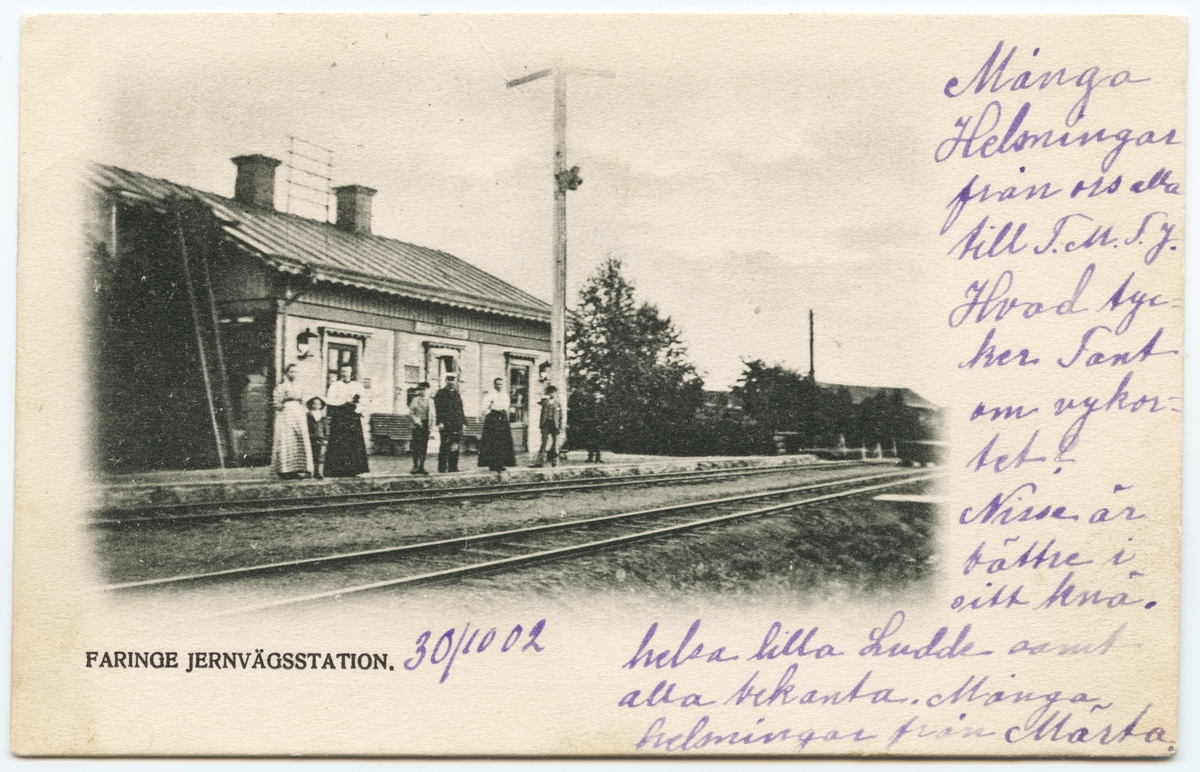 Många
Helsningar
från oss alla
till T. M. T. J.
Hvad tyc-
ker Tant
om vykor-
tet?
Nisse är
bättre i
sitt knä.
helsa lilla Ludde samt
alla bekanta. Många
helsningar från Märta.
FARINGE JERNVÄGSSTATION. 30/10 02